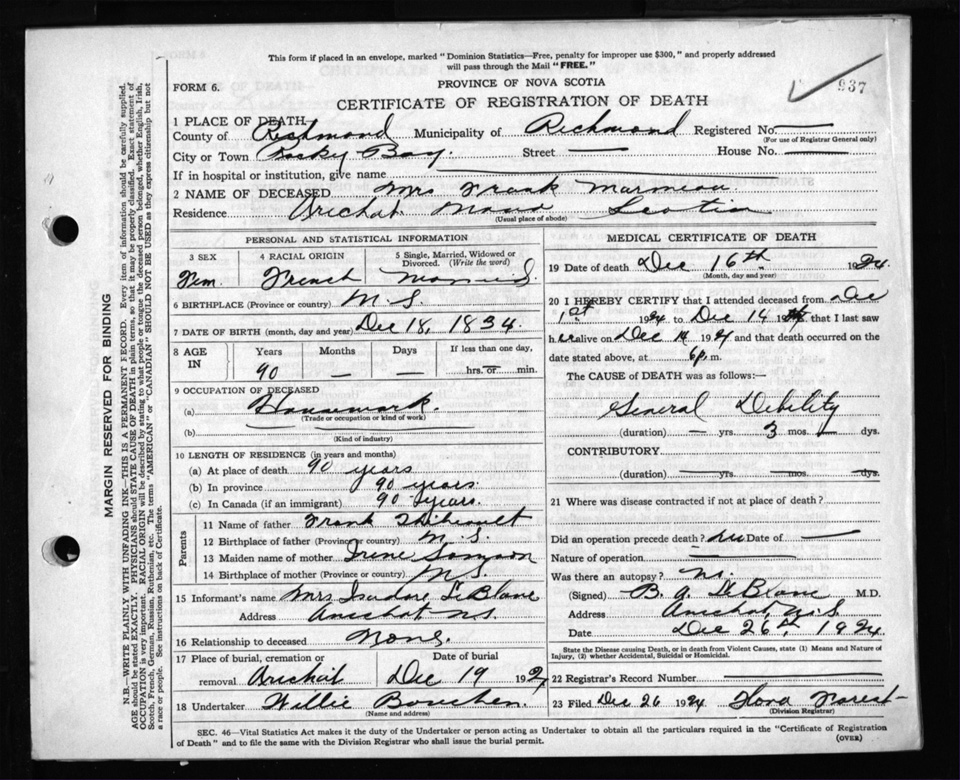 This form if placed in an envelope, marked "Dominion Statistics—Free, penalty for improper use $300," and properly addressed
will pass through the Mail "FREE."
FORM 6.
PROVINCE OF NOVA SCOTIA
937
CERTIFICATE OF REGISTRATION OF DEATH
1 PLACE OF DEATH
County of Richmond Municipality of Richmond Registered No.
(For use of Registrar General only)
City or Town Rocky Bay. Street House No.
If in hospital or institution, give name
2 NAME OF DECEASED Mrs Frank Marmeau
Residence Arichat Nova Scotia
(Usual place of abode)
PERSONAL AND STATISTICAL INFORMATION
3 SEX
Fem.
4 RACIAL ORIGIN
French
5 Single, Married, Widowed or
Divorced. (Write the word)
6 BIRTHPLACE (Province or country) N.S.
7 DATE OF BIRTH (month, day and year) Dec 18, 1834.
8 AGE IN
Years Months Days If less than one day,
90 — — hrs. or min.
9 OCCUPATION OF DECEASED
(a) Housework.
(Trade or occupation or kind of work)
(b)
(Kind of industry)
10 LENGTH OF RESIDENCE (in years and months)
(a) At place of death 90 years
(b) In province 90 years
(c) In Canada (if an immigrant) 90 years.
Parents
11 Name of father Frank Thibeault
12 Birthplace of father (Province or country) N.S.
13 Maiden name of mother Irene Samson
14 Birthplace of mother (Province or country) N.S.
15 Informant's name Mrs Isadore LeBlanc
Address Arichat N.S.
16 Relationship to deceased None.
17 Place of burial, cremation or Date of burial
removal Arichat Dec 19 192
18 Undertaker Willie
(Name and address)
MEDICAL CERTIFICATE OF DEATH
19 Date of death Dec 16th 1924.
(Month, day and year)
20 I HEREBY CERTIFY that I attended deceased from Dec
1st 1924 to Dec 14 that I last saw
her alive on Dec 1924 and that death occurred on the
date stated above, at 6 p.m.
The CAUSE OF DEATH was as follows:—
General Debility
(duration) — yrs. 3 mos. — dys.
CONTRIBUTORY
(duration) yrs. mos. dys.
21 Where was disease contracted if not at place of death?
Did an operation precede death? no Date of
Nature of operation
Was there an autopsy? no.
(Signed) B. A. LeBlanc M.D.
Address Arichat N.S.
Date Dec 26th, 1924
State the Disease causing Death, or in death from Violent Causes, state (1) Means and Nature of
Injury, (2) whether Accidental, Suicidal or Homicidal.
22 Registrar's Record Number
23 Filed Dec 26 1924 Flora Forest
(Division Registrar)
SEC. 46—Vital Statistics Act makes it the duty of the Undertaker or person acting as Undertaker to obtain all the particulars required in the "Certificate of Registration
of Death" and to file the same with the Division Registrar who shall issue the burial permit.
(OVER)
MARGIN RESERVED FOR BINDING
N.B.—WRITE PLAINLY WITH UNFADING INK—THIS IS A PERMANENT RECORD. Every item of information should be carefully supplied.
AGE should be stated EXACTLY. PHYSICIANS should STATE CAUSE OF DEATH in plain terms, so that it may be properly classified. Exact statement of
OCCUPATION is very important. RACIAL ORIGIN will be described by stating to what people or tongue the deceased person belonged, whether English, Irish,
Scotch, French, German, Russian, Ruthenian, etc. The terms "AMERICAN" or "CANADIAN" SHOULD NOT BE USED as they express citizenship but not
a race or people. See instructions on back of Certificate.